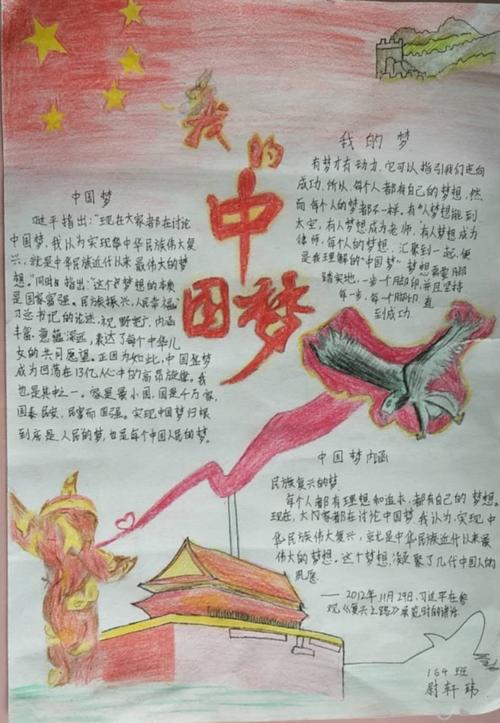 我的
中
国梦
我的梦
有梦才有动力，它可以指引我们走向
成功。所以，每个人都有自己的梦想，然
而每个人的梦都不一样。有人梦想能到
太空，有人梦想成为老师，有人梦想成为
律师，每个人的梦想，汇聚到一起，便
是我理解的“中国梦”梦想需要脚
踏实地，一步一个脚印，并且坚持
每一步，每个脚印，直
到成功．
中国梦
近平指出：“现在大家都在讨论
中国梦，我认为实现中华民族伟大复
兴，就是中华民族近代以来最伟大的梦
想。”同时指出：“这个梦想的本质
是国家富强。民族振兴，人民幸福”
习总书记的论述，视野宽广，内涵
丰富，意蕴深远，表达了每个中华儿
女的共同愿望。正因为如此，中国梦
成为回荡在13亿人心中的高昂旋律。我
也是其中之一。家是最小国，国是千万家，
国泰民安，民富而国强。实现中国梦归根
到底是人民的梦，也是每个中国人民的梦。
中国梦内涵
民族复兴的梦
每个人都有理想和追求，都有自己的梦想。
现在，大家都在讨论中国梦，我认为，实现中
华民族伟大复兴，就是中华民族近代以来最
伟大的梦想。这个梦想，凝聚了几代中国人的
夙愿
——2012年11月29日，习近平在参
观《复兴之路》展览时的讲话
164班
尉轩玮